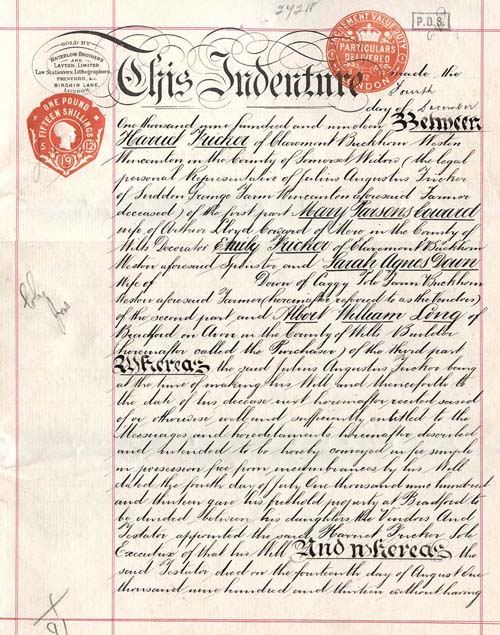 2428
P.D.8.
SOLD BY
WATERLOW BROTHERS
AND
LAYTON, LIMITED
Law Stationers, Lithographers,
PRINTERS, &c.
BIRCHIN LANE,
LONDON.
INCREMENT VALUE DUTY
PARTICULARS
DELIVERED
LONDON
ONE POUND
FIFTEEN SHILLINGS
5
12
19
This Indenture made the
Fourth
day of December
One thousand nine hundred and nineteen Between
Harriet Tricker of Claremont Buckhorn Weston
Wincanton in the County of Somerset Widow (the legal
personal Representative of Julius Augustus Tricker
of Suddon Grange Farm Wincanton aforesaid Farmer
deceased) of the first part Mary Parsons Coward
wife of Arthur Lloyd Coward of Mere in the County of
Wilts Decorator Emily Tricker of Claremont Buckhorn
Weston aforesaid Spinster and Sarah Agnes Down
Wife of Down of Caggy Pole Farm Buckhorn
Weston aforesaid Farmer (hereinafter referred to as the Vendors)
of the second part and Albert William Long of
Bradford on Avon in the County of Wilts Builder
hereinafter called the Purchaser) of the third part
Whereas the said Julius Augustus Tricker being
at the time of making his Will and thenceforth to
the date of his decease next hereinafter recited seised
of or otherwise well and sufficiently entitled to the
Messuages and hereditaments hereinafter described
and intended to be hereby conveyed in fee simple
in possession free from incumbrances by his Will
dated the fourth day of July One thousand nine hundred
and thirteen gave his freehold property at Bradford to
be divided between his daughters the Vendors And
Testator appointed the said Harriet Tricker Sole
Executrix of that his Will And whereas the
said Testator died on the fourteenth day of August One
thousand nine hundred and thirteen without having